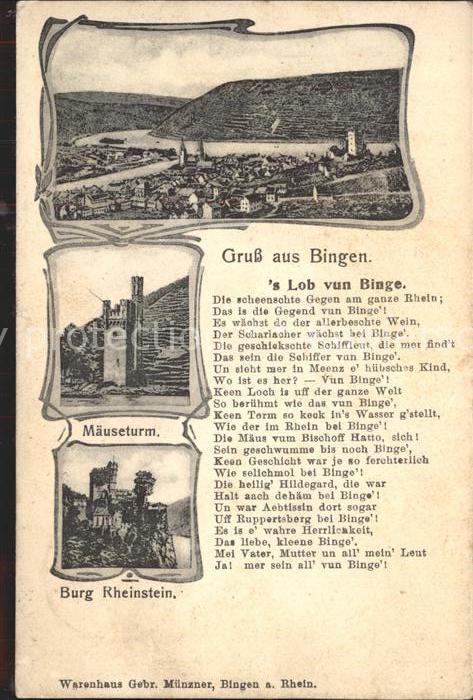 Gruß aus Bingen.
's Lob vun Binge.
Die scheenschte Gegen am ganze Rhein;
Das is die Gegend vun Binge'!
Es wächst do der allerbeschte Wein,
Der Scharlacher wächst bei Binge'.
Die geschickschte Schiffleut, die mer find't
Das sein die Schiffer vun Binge'.
Un sieht mer in Meenz e' hübsches Kind,
Wo ist es her? — Vun Binge'!
Keen Loch is uff der ganze Welt
So berühmt wie das vun Binge',
Keen Torm so keck in's Wasser g'stellt,
Wie der im Rhein bei Binge'!
Die Mäus vum Bischoff Hatto, sich!
Sein geschwumme bis noch Binge',
Keen Geschicht war je so ferchterlich
Wie selichmol bei Binge'!
Die heilig' Hildegard, die war
Halt aach dehäm bei Binge'!
Un war Aebtissin dort sogar
Uff Ruppertsberg bei Binge'!
Es is e' wahre Herrlickeit,
Das liebe, kleene Binge'.
Mei Vater, Mutter un all' mein' Leut
Ja! mer sein all' vun Binge'!
Mäuseturm.
Burg Rheinstein.
Warenhaus Gebr. Münzner, Bingen a. Rhein.